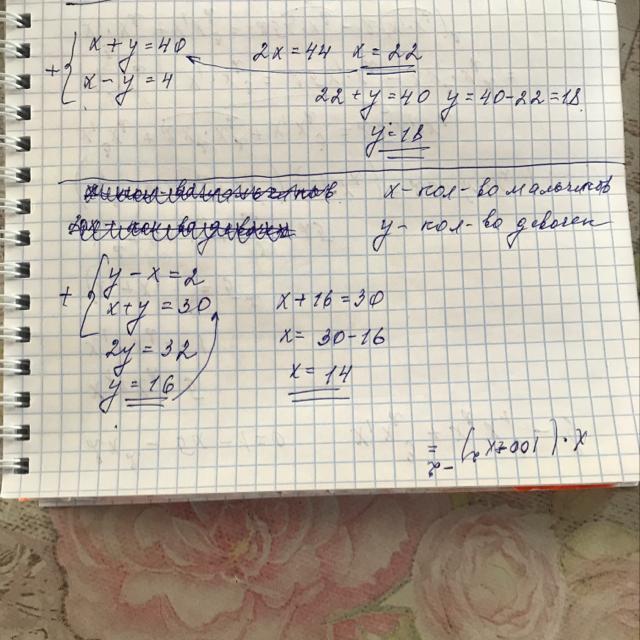 x + y = 40   2x = 44   x = 22
x - y = 4
22 + y = 40   y = 40 - 22 = 18
y = 18
x - кол-во мальчиков
y - кол-во девочек
y - x = 2
x + y = 30   x + 16 = 30
2y = 32   x = 30 - 16
y = 16   x = 14